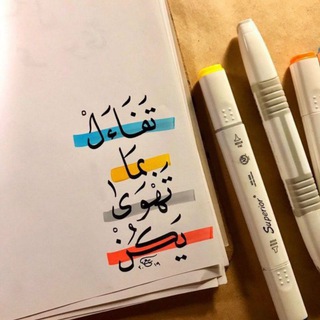 تَفَاءَلْ
بِمَا
تَهْوَىٰ
يَكُنْ
Superior